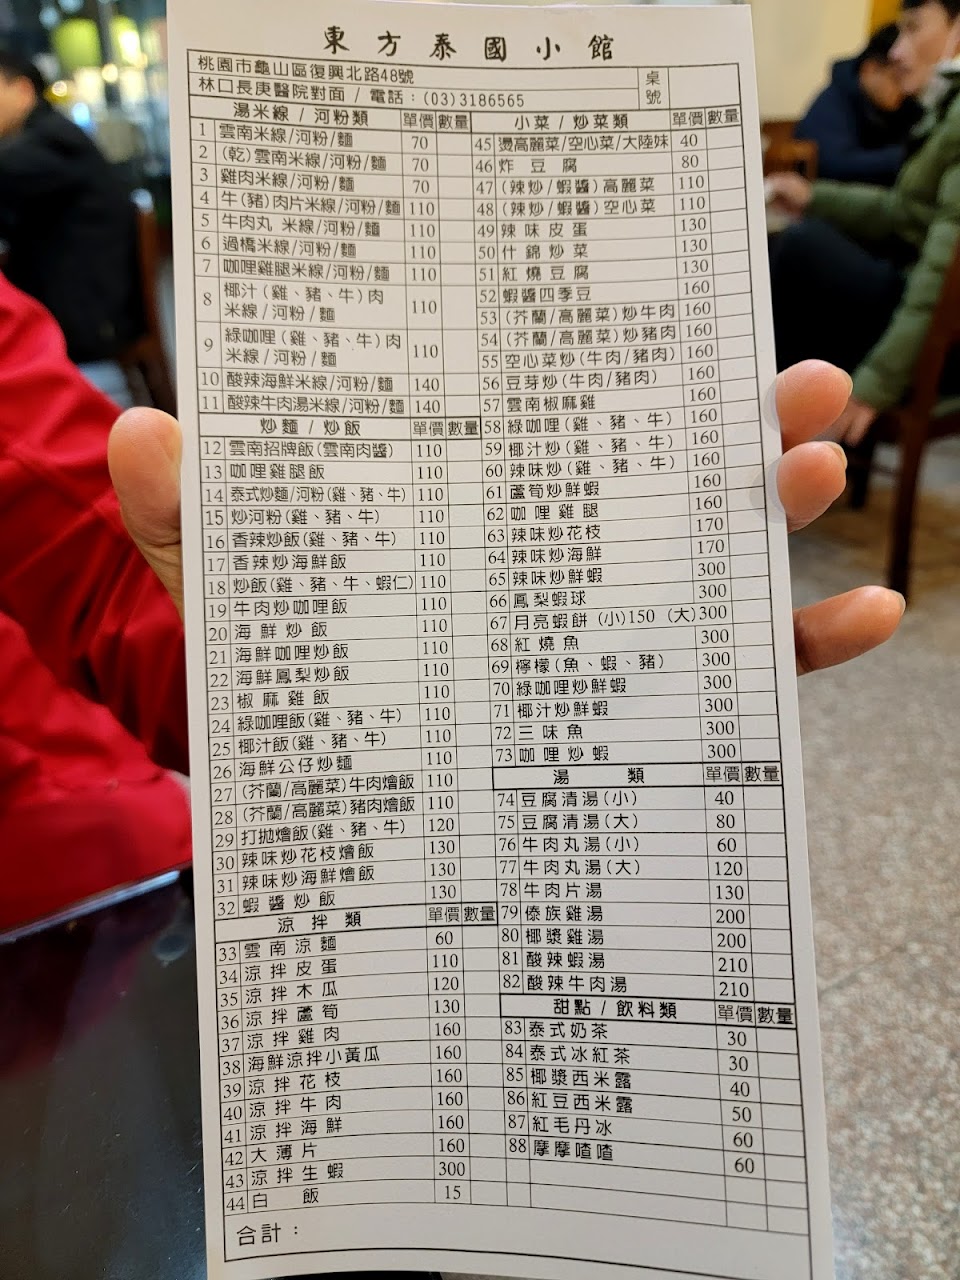 東方泰國小館
桃園市龜山區復興北路48號
林口長庚醫院對面 / 電話：(03)3186565
桌號
湯米線 / 河粉類 單價 數量
1 雲南米線/河粉/麵 70
2 (乾)雲南米線/河粉/麵 70
3 雞肉米線/河粉/麵 70
4 牛(豬)肉片米線/河粉/麵 110
5 牛肉丸 米線/河粉/麵 110
6 過橋米線/河粉/麵 110
7 咖哩雞腿米線/河粉/麵 110
8 椰汁(雞、豬、牛)肉
米線/河粉/麵 110
9 綠咖哩(雞、豬、牛)肉
米線/河粉/麵 110
10 酸辣海鮮米線/河粉/麵 140
11 酸辣牛肉湯米線/河粉/麵 140
炒麵 / 炒飯 單價 數量
12 雲南招牌飯(雲南肉醬) 110
13 咖哩雞腿飯 110
14 泰式炒麵/河粉(雞、豬、牛) 110
15 炒河粉(雞、豬、牛) 110
16 香辣炒飯(雞、豬、牛) 110
17 香辣炒海鮮飯 110
18 炒飯(雞、豬、牛、蝦仁) 110
19 牛肉炒咖哩飯 110
20 海鮮炒飯 110
21 海鮮咖哩炒飯 110
22 海鮮鳳梨炒飯 110
23 椒麻雞飯 110
24 綠咖哩飯(雞、豬、牛) 110
25 椰汁飯(雞、豬、牛) 110
26 海鮮公仔炒麵 110
27 (芥蘭/高麗菜)牛肉燴飯 110
28 (芥蘭/高麗菜)豬肉燴飯 110
29 打拋燴飯(雞、豬、牛) 120
30 辣味炒花枝燴飯 130
31 辣味炒海鮮燴飯 130
32 蝦醬炒飯 130
涼拌類 單價 數量
33 雲南涼麵 60
34 涼拌皮蛋 110
35 涼拌木瓜 120
36 涼拌蘆筍 130
37 涼拌雞肉 160
38 海鮮涼拌小黃瓜 160
39 涼拌花枝 160
40 涼拌牛肉 160
41 涼拌海鮮 160
42 大薄片 160
43 涼拌生蝦 300
44 白飯 15
合計：
小菜 / 炒菜類 單價 數量
45 燙高麗菜/空心菜/大陸妹 40
46 炸豆腐 80
47 (辣炒/蝦醬)高麗菜 110
48 (辣炒/蝦醬)空心菜 110
49 辣味皮蛋 130
50 什錦炒菜 130
51 紅燒豆腐 130
52 蝦醬四季豆 160
53 (芥蘭/高麗菜)炒牛肉 160
54 (芥蘭/高麗菜)炒豬肉 160
55 空心菜炒(牛肉/豬肉) 160
56 豆芽炒(牛肉/豬肉) 160
57 雲南椒麻雞 160
58 綠咖哩(雞、豬、牛) 160
59 椰汁炒(雞、豬、牛) 160
60 辣味炒(雞、豬、牛) 160
61 蘆筍炒鮮蝦 160
62 咖哩雞腿 160
63 辣味炒花枝 170
64 辣味炒海鮮 170
65 辣味炒鮮蝦 300
66 鳳梨蝦球 300
67 月亮蝦餅 (小)150 (大)300
68 紅燒魚 300
69 檸檬(魚、蝦、豬) 300
70 綠咖哩炒鮮蝦 300
71 椰汁炒鮮蝦 300
72 三味魚 300
73 咖哩炒蝦 300
湯類 單價 數量
74 豆腐清湯(小) 40
75 豆腐清湯(大) 80
76 牛肉丸湯(小) 60
77 牛肉丸湯(大) 120
78 牛肉片湯 130
79 傣族雞湯 200
80 椰漿雞湯 200
81 酸辣蝦湯 210
82 酸辣牛肉湯 210
甜點 / 飲料類 單價 數量
83 泰式奶茶 30
84 泰式冰紅茶 30
85 椰漿西米露 40
86 紅豆西米露 50
87 紅毛丹冰 60
88 摩摩喳喳 60